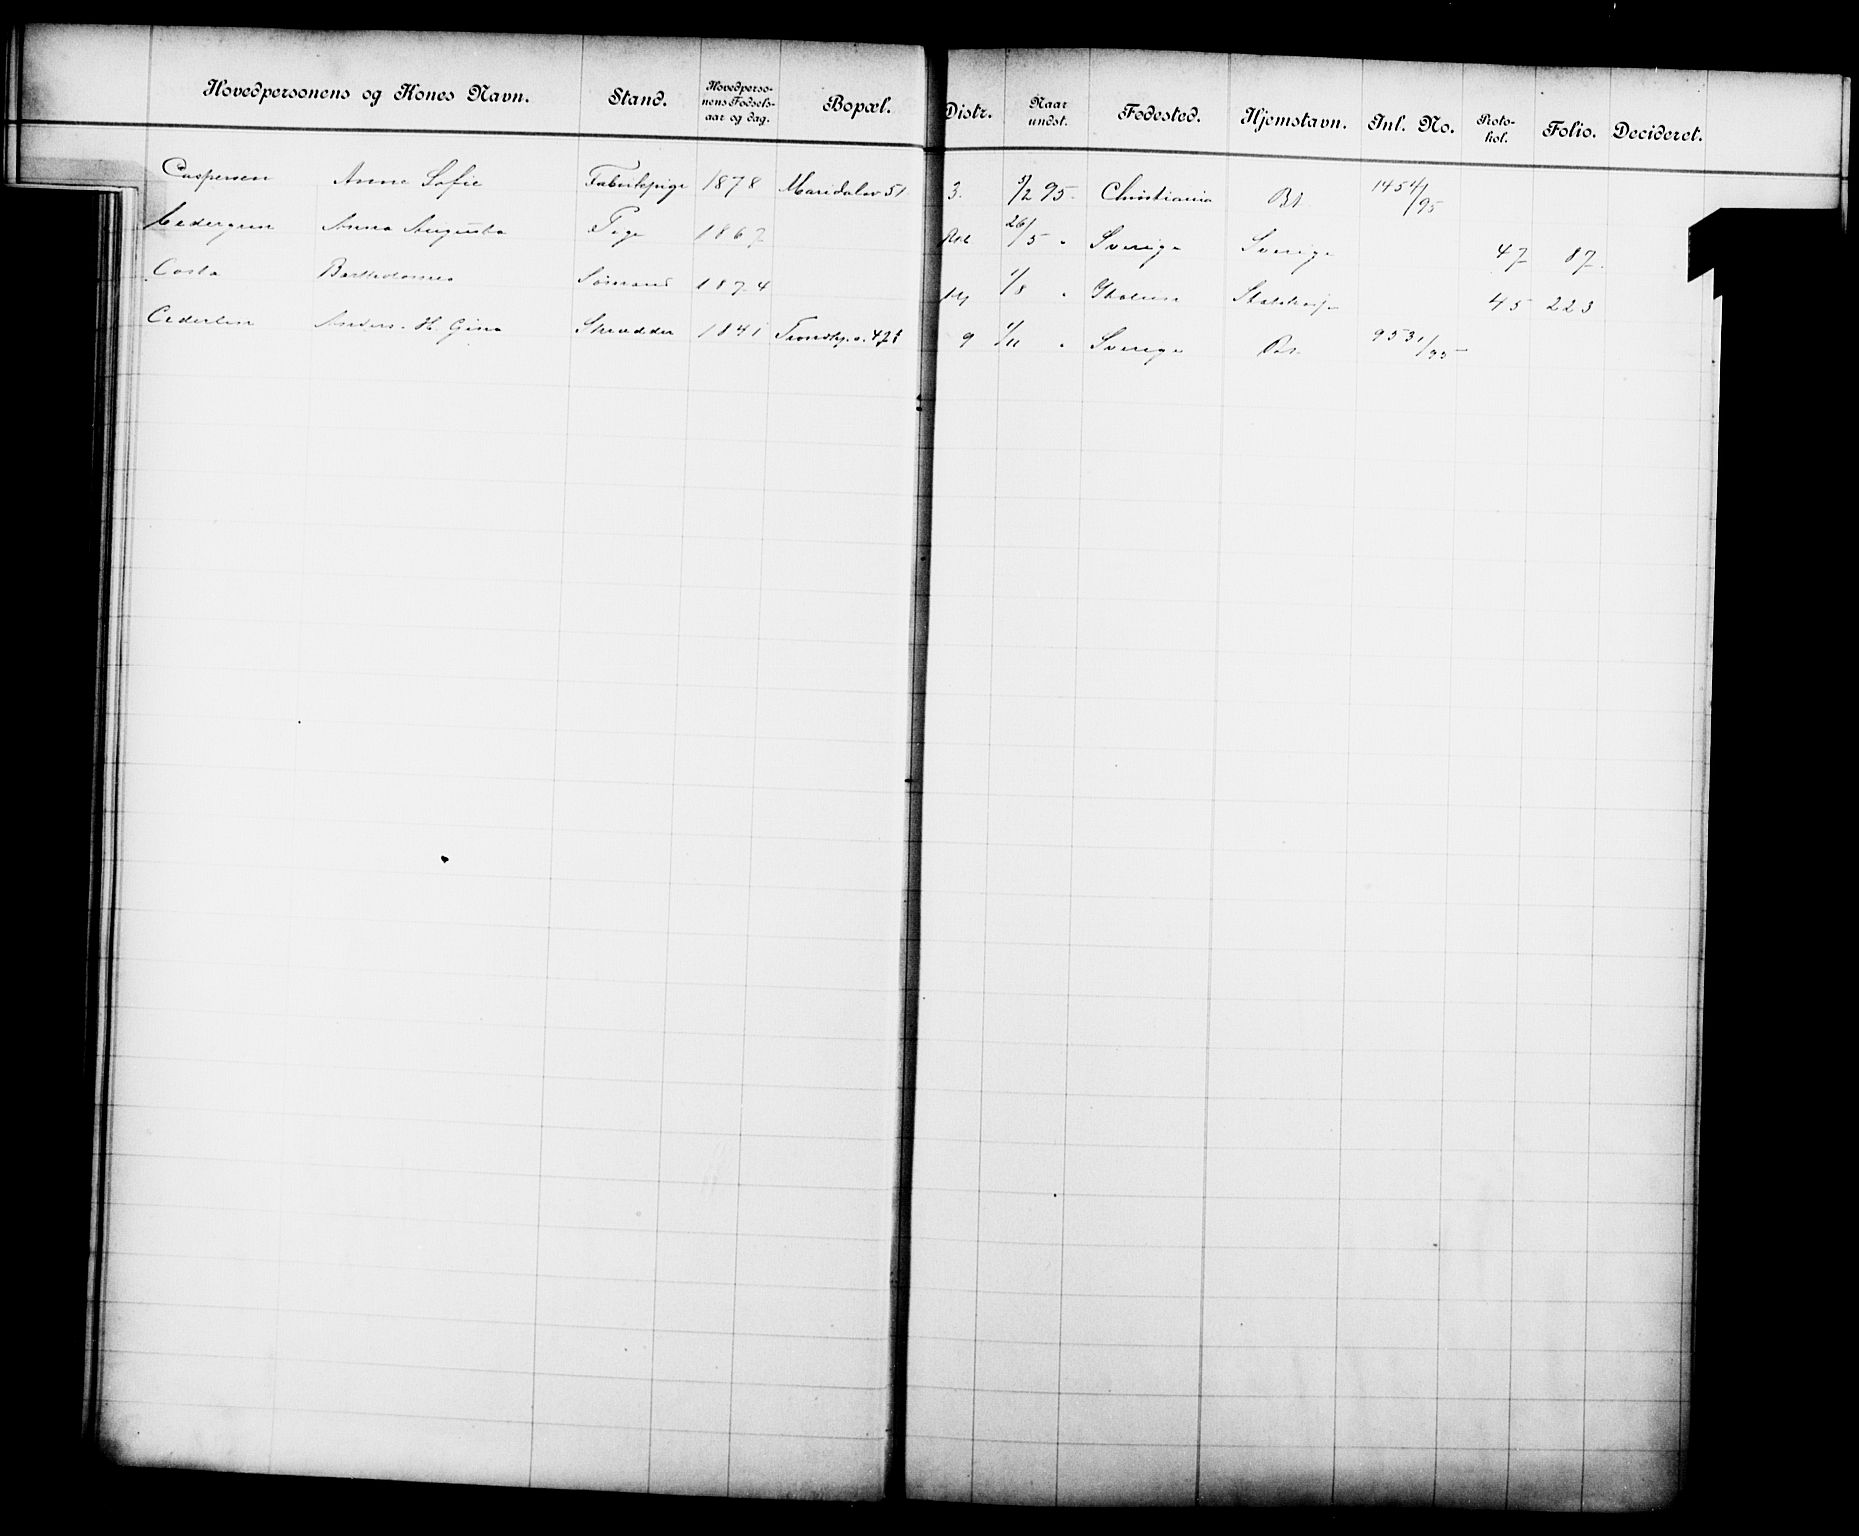 Hovedpersonens og Kones Navn. Stand. Hovedperso-nens Fødsels-aar og dag. Bopæl. Distr. Naar undst. Fødested. Hjemstavn. Inl. No. Proto-kol. Folio. Decideret.
Caspersen Anne Sofie Fabrikpige 1878 Maridalsv 51 3. 5/2 95. Christiania 1454/95
Cedergren Anna Augusta Pige 1867 26/5 " Sverige Sverige 47 87.
Costa Bartholomeo Sømand 1874 1/8 " Italien 45 223
Cederlen Anders. H. Gina Skrædder 1841 9 1/11 " Sverige 953/95